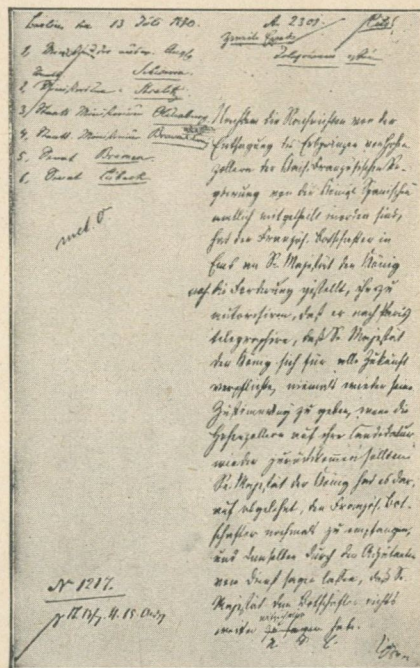 Berlin den 13 Juli 1870.
A. 2301.
Schwerin
Strelitz
3, Staats Ministerium Oldenburg
4, Staats Ministerium Braunschweig
5, Senat Bremen
6, Senat Lübeck
Nachdem die Nachrichten von der
Entsagung des Erbprinzen von Hohen
zollern der Kais. Französischen Re
gierung von der Königl. Spanischen
amtlich mitgetheilt worden sind,
hat der Französ. Botschafter in
Ems an Se. Majestät den König
noch die Forderung gestellt, ihn zu
autorisiren, daß er nach Paris
telegraphire, daß Se. Majestät
der König sich für alle Zukunft
verpflichte, niemals wieder seine
Zustimmung zu geben, wenn die
Hohenzollern auf ihre Candidatur
wieder zurückkommen sollten.
Se. Majestät der König hat es dar
auf abgelehnt, den Französ. Bot
schafter nochmals zu empfangen,
und demselben durch den Adjutanten
vom Dienst sagen lassen, daß Se.
Majestät dem Botschafter nichts
weiter mitzutheilen habe.
No 1217.